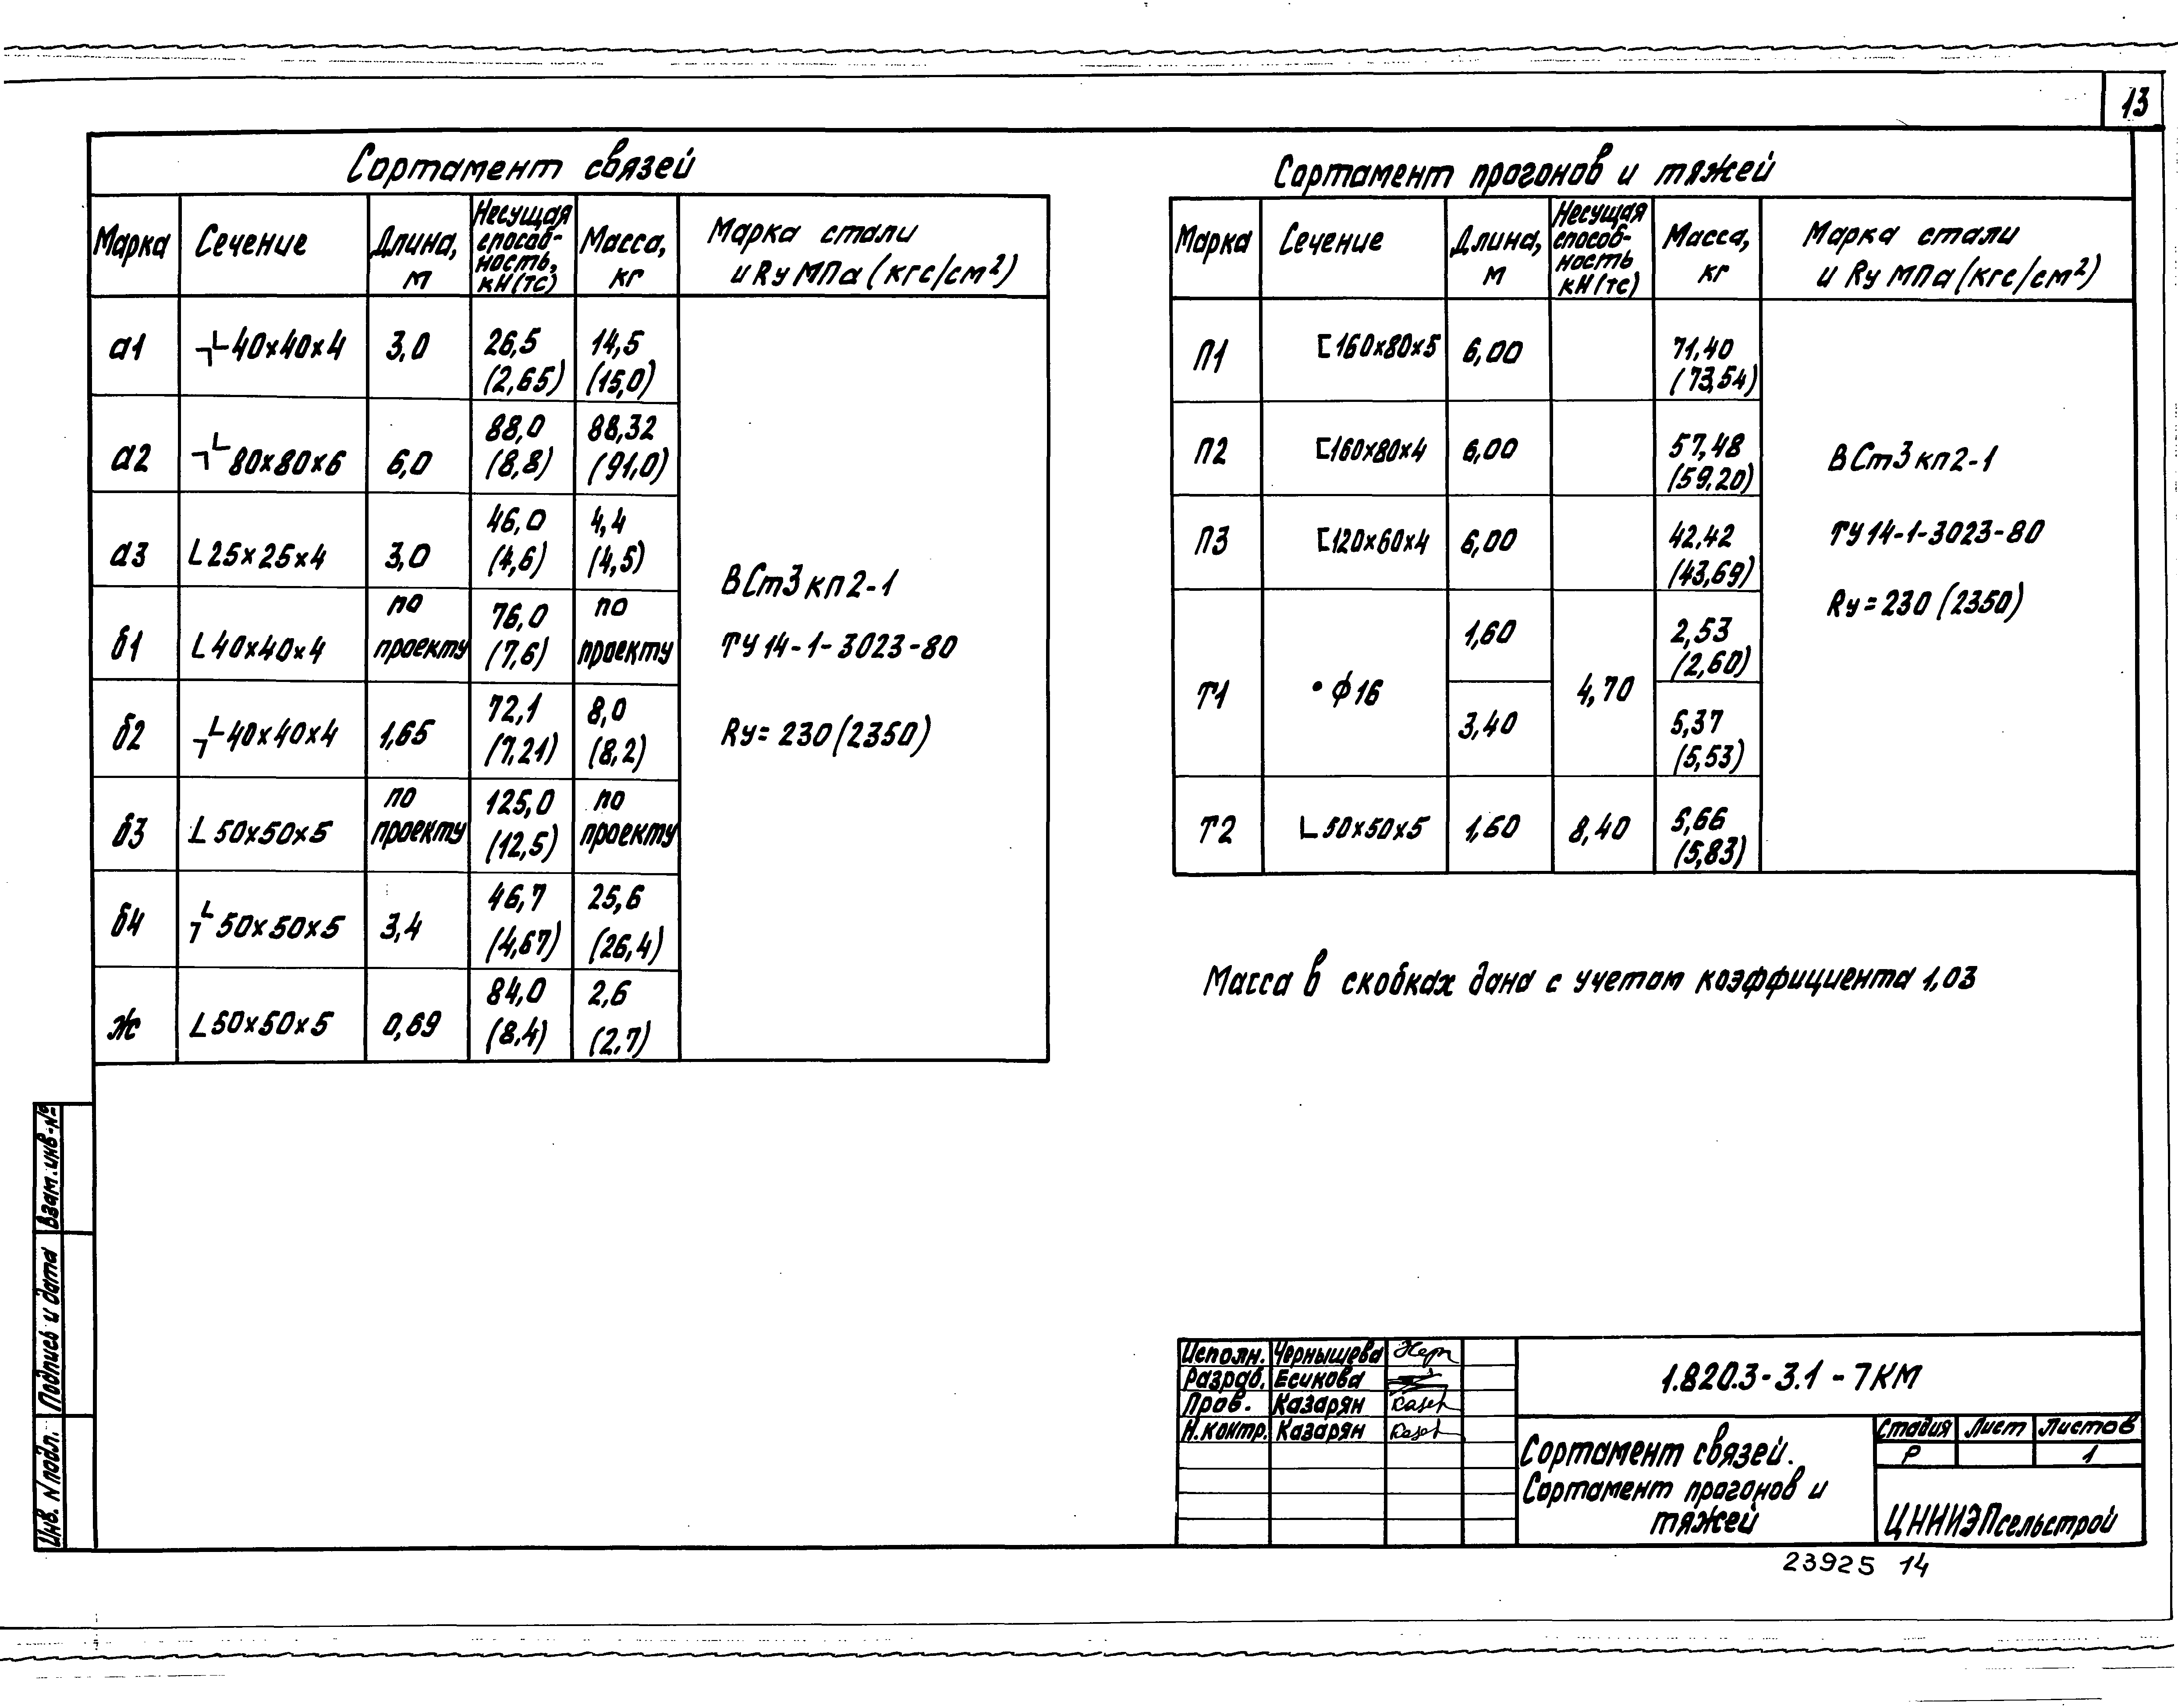 13
Сортамент связей
Марка Сечение Длина, м Несущая способ-ность, кН(тс) Масса, кг Марка стали и Rу МПа (кгс/см²)
а1 40х40х4 3,0 26,5 (2,65) 14,5 (15,0)
а2 80х80х6 6,0 88,0 (8,8) 88,32 (91,0)
а3 L 25х25х4 3,0 46,0 (4,6) 4,4 (4,5)
б1 L 40х40х4 по проекту 76,0 (7,6) по проекту
б2 40х40х4 1,65 72,1 (7,21) 8,0 (8,2)
б3 L 50х50х5 по проекту 125,0 (12,5) по проекту
б4 50х50х5 3,4 46,7 (4,67) 25,6 (26,4)
ж L 50х50х5 0,69 84,0 (8,4) 2,6 (2,7)
ВСт3кп2-1
ТУ 14-1-3023-80
Rу= 230 (2350)
Сортамент прогонов и тяжей
Марка Сечение Длина, м Несущая способ-ность кН(тс) Масса, кг Марка стали и Rу МПа (кгс/см²)
П1 [160х80х5 6,00 71,40 (73,54)
П2 [160х80х4 6,00 57,48 (59,20)
П3 [120х60х4 6,00 42,42 (43,69)
Т1 • ф16 1,60 4,70 2,53 (2,60)
3,40 5,37 (5,53)
Т2 L 50х50х5 1,60 8,40 5,66 (5,83)
ВСт3кп2-1
ТУ 14-1-3023-80
Rу=230 (2350)
Масса в скобках дана с учетом коэффициента 1,03
Взам. инв. №
Подпись и дата
Инв. N подл.
Исполн. Чернышева
Разраб. Есикова
Пров. Казарян
Н. контр. Казарян
1.820.3-3.1-7КМ
Сортамент связей.
Сортамент прогонов и
тяжей
Стадия Лист Листов
Р 1
ЦНИИЭПсельстрой
23925 14